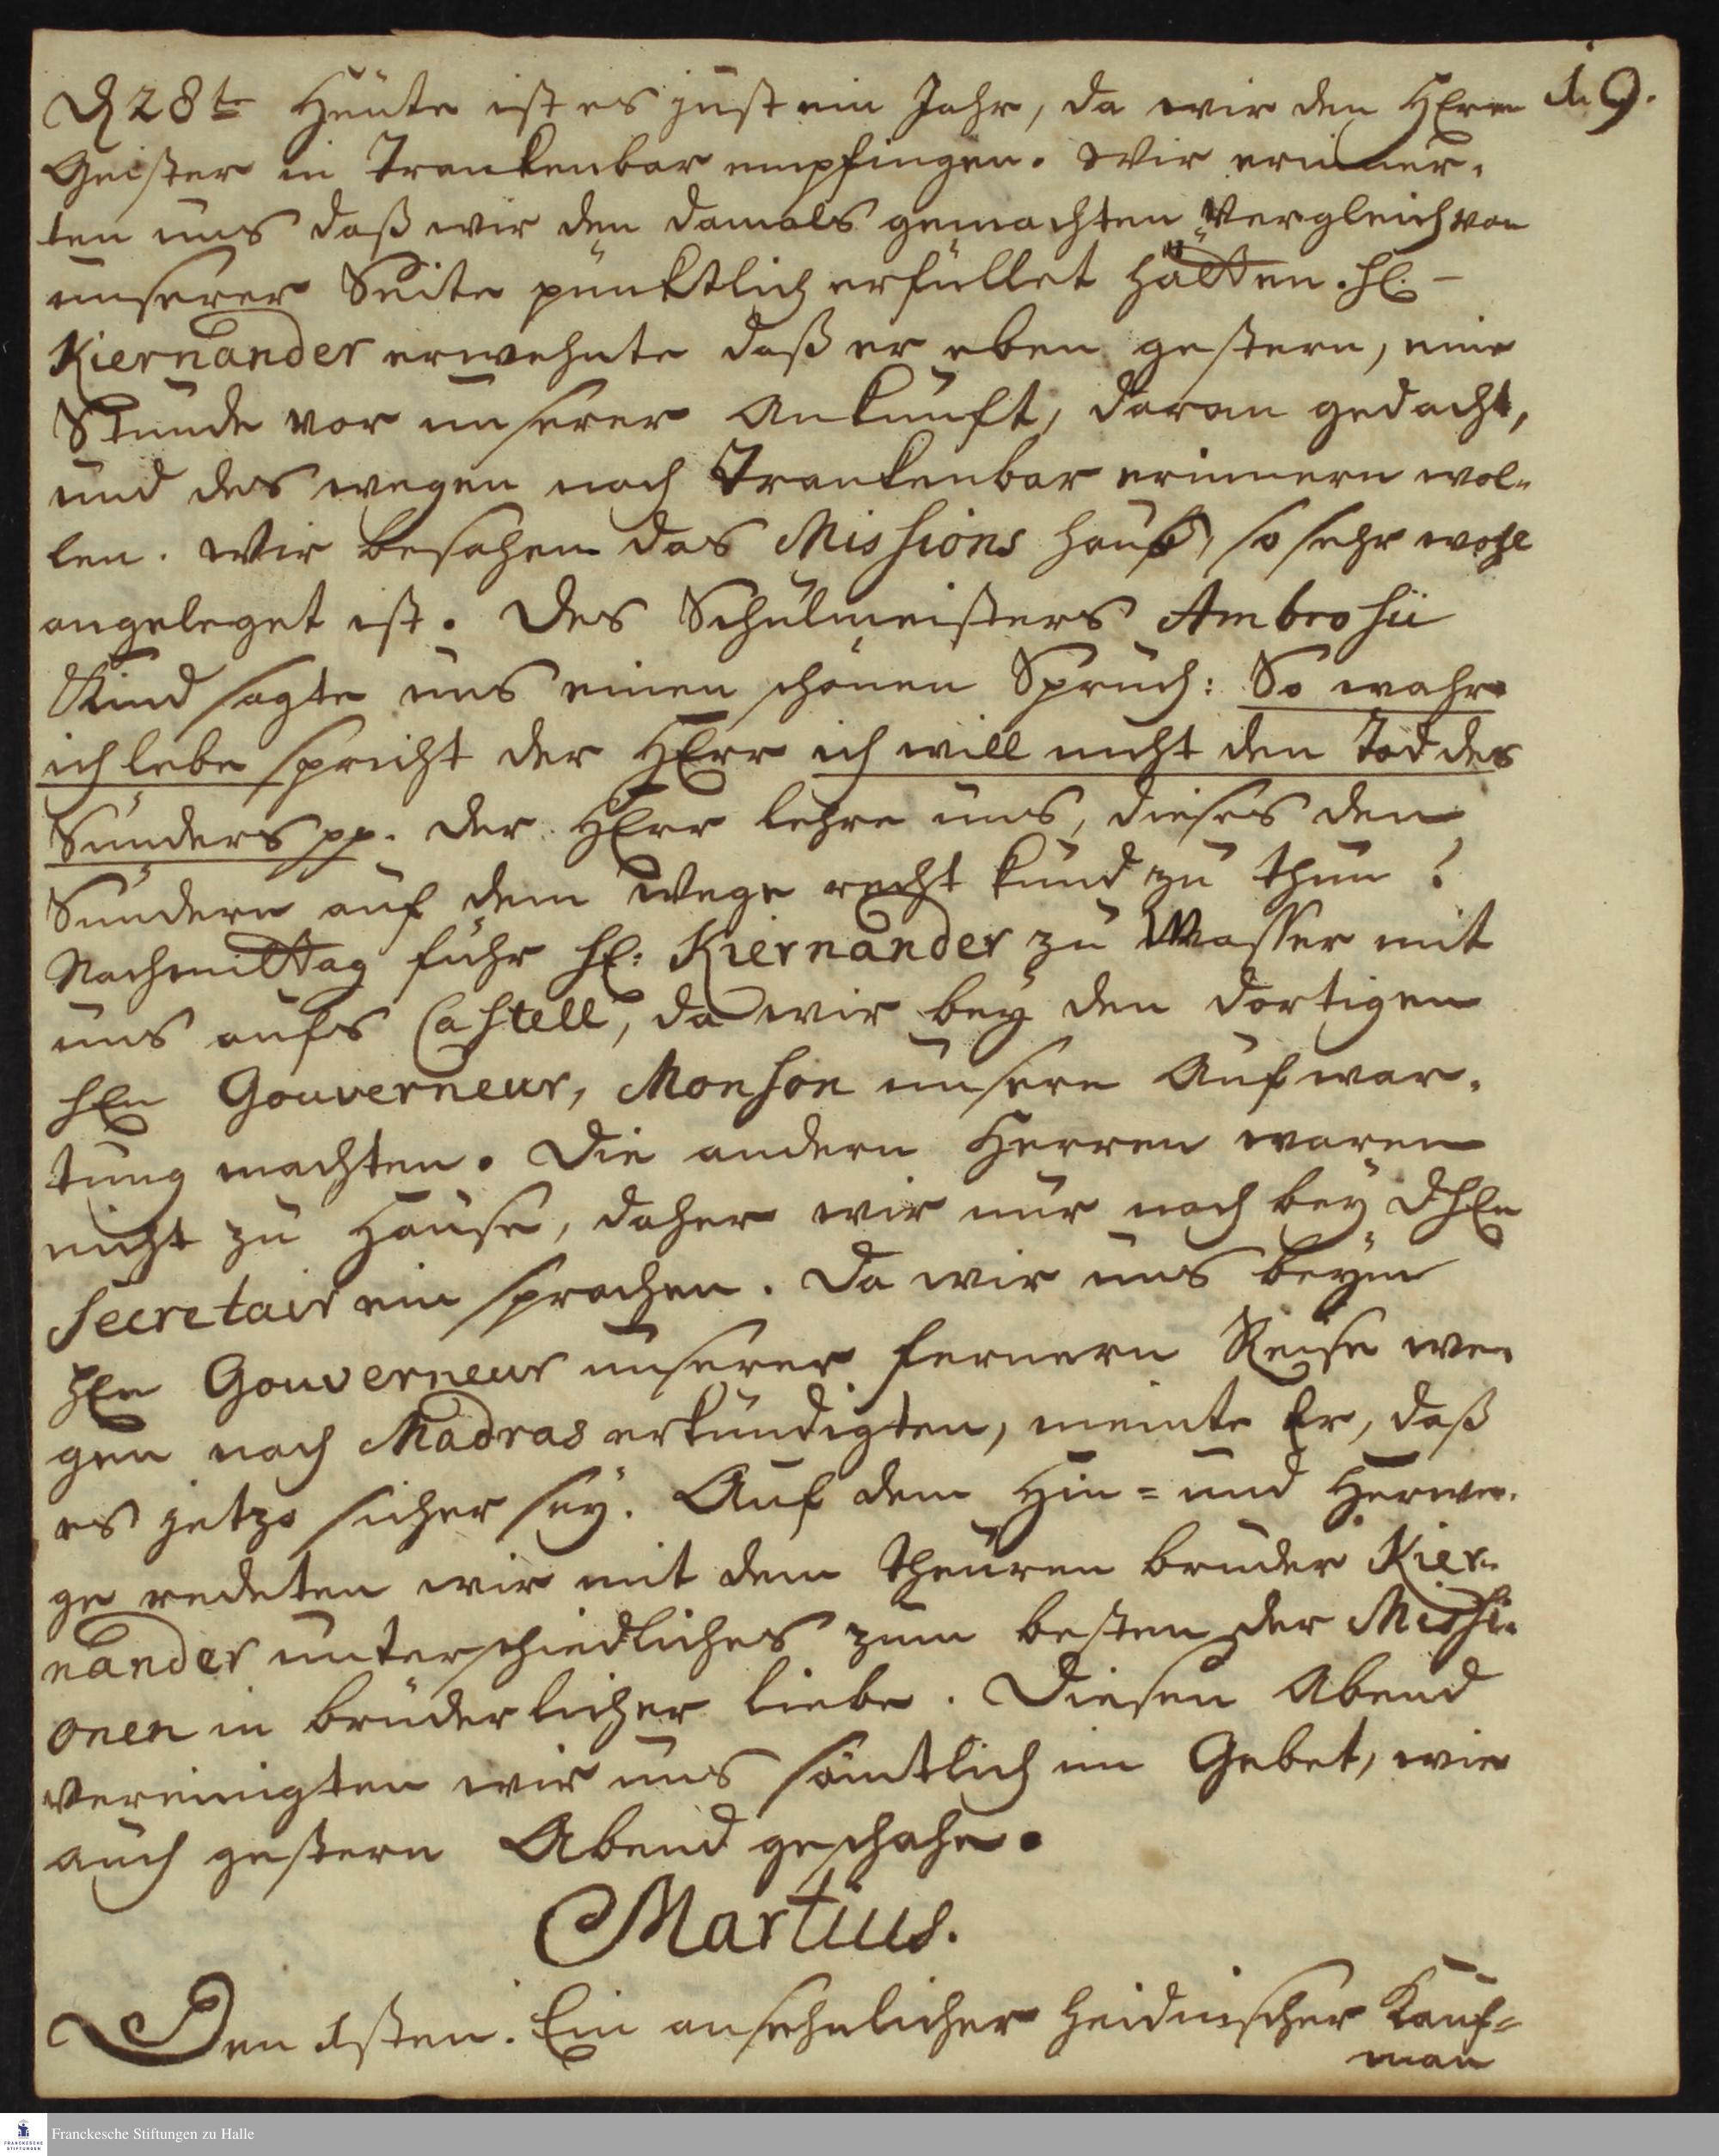 D 28t. Heute ist es just ein Jahr, da wir den HErrn 19.
Geister in Trankenbar empfingen. Wir erinner-
ten uns daß wir den damals gemachten Vergleich von
unserer Seite pünktlich erfüllet hätten. H.
Kiernander erwehnte daß er eben gestern, eine
Stunde vor unserer Ankunft, daran gedacht,
und des wegen nach Trankenbar erinnern wol-
len. Wir besahen das Missions Hauß, so sehr wohl
angeleget ist. Des Schulmeisters Ambrosii
Kind sagte uns einen schönen Spruch: So wahr
ich lebe spricht der HErr ich will nicht den Tod des
Sünders pp. Der HErr lehre uns, dieses den
Sündern auf dem Wege recht kund zu thun!
Nachmittag fuhr H: Kiernander zu Wasser mit
uns aufs Castell, da wir bey den dortigen
HEn Gouverneur, Monson unsere Aufwar-
tung machten. Die andern Herren waren
nicht zu Hause, daher wir nur noch bey d HEn
Secretair ein sprachen. Da wir uns beym
HEn Gouverneur unserer fernern Reise we-
gen nach Madras erkundigten, meinte Er, daß
es jetzo sicher sey. Auf dem Hin- und Herwe-
ge redeten wir mit dem theuren Bruder Kier-
nander unterschiedliches zum besten der Missi-
onen in brüderlicher Liebe. Diesen Abend
vereinigten wir uns sämtlich im Gebet, wie
auch gestern Abend geschahe.
Martius.
Den 1sten. Ein ansehnlicher heidnischer Kauf-
man
Franckesche Stiftungen zu Halle
FRANCKESCHE STIFTUNGEN